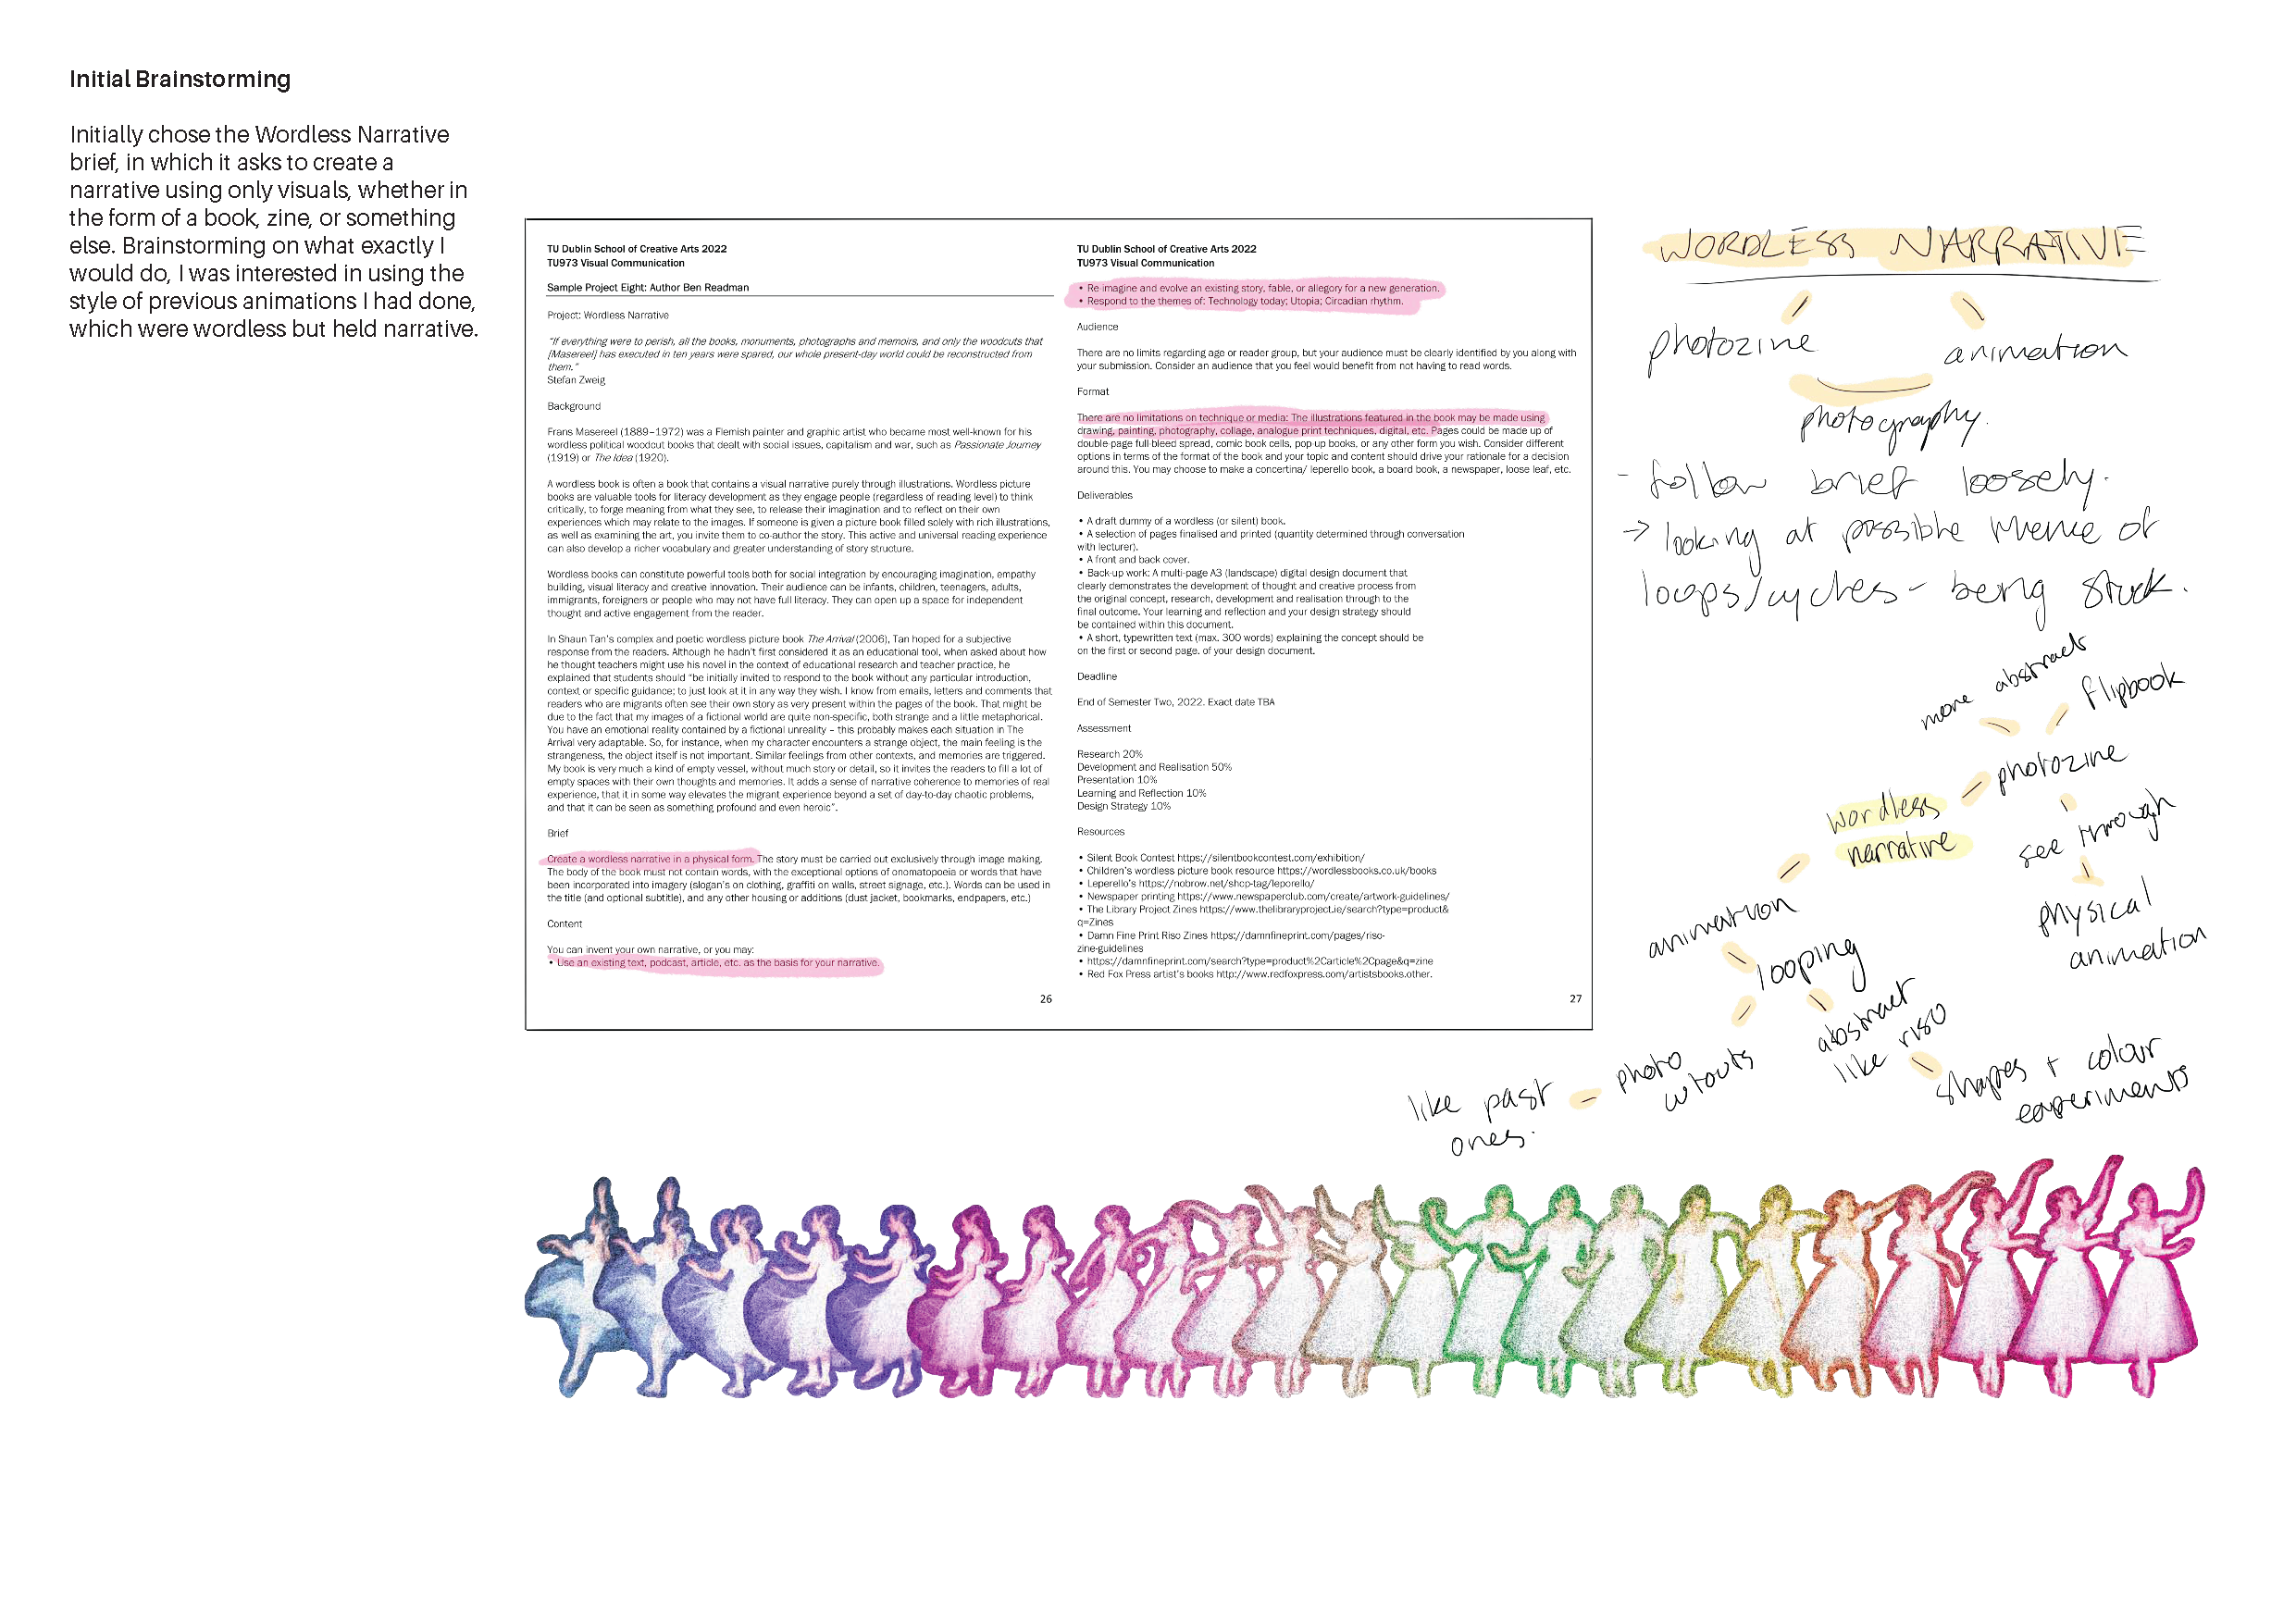 Initial Brainstorming
Initially chose the Wordless Narrative
brief, in which it asks to create a
narrative using only visuals, whether in
the form of a book, zine, or something
else. Brainstorming on what exactly I
would do, I was interested in using the
style of previous animations I had done,
which were wordless but held narrative.
TU Dublin School of Creative Arts 2022
TU973 Visual Communication
Sample Project Eight: Author Ben Readman
Project: Wordless Narrative
"If everything were to perish, all the books, monuments, photographs and memoirs, and only the woodcuts that
[Masereel] has executed in ten years were spared, our whole present-day world could be reconstructed from
them."
Stefan Zweig
Background
Frans Masereel (1889–1972) was a Flemish painter and graphic artist who became most well-known for his
wordless political woodcut books that dealt with social issues, capitalism and war, such as Passionate Journey
(1919) or The Idea (1920).
A wordless book is often a book that contains a visual narrative purely through illustrations. Wordless picture
books are valuable tools for literacy development as they engage people (regardless of reading level) to think
critically, to forge meaning from what they see, to release their imagination and to reflect on their own
experiences which may relate to the images. If someone is given a picture book filled solely with rich illustrations,
as well as examining the art, you invite them to co-author the story. This active and universal reading experience
can also develop a richer vocabulary and greater understanding of story structure.
Wordless books can constitute powerful tools both for social integration by encouraging imagination, empathy
building, visual literacy and creative innovation. Their audience can be infants, children, teenagers, adults,
immigrants, foreigners or people who may not have full literacy. They can open up a space for independent
thought and active engagement from the reader.
In Shaun Tan's complex and poetic wordless picture book The Arrival (2006), Tan hoped for a subjective
response from the readers. Although he hadn't first considered it as an educational tool, when asked about how
he thought teachers might use his novel in the context of educational research and teacher practice, he
explained that students should "be initially invited to respond to the book without any particular introduction,
context or specific guidance; to just look at it in any way they wish. I know from emails, letters and comments that
readers who are migrants often see their own story as very present within the pages of the book. That might be
due to the fact that my images of a fictional world are quite non-specific, both strange and a little metaphorical.
You have an emotional reality contained by a fictional unreality – this probably makes each situation in The
Arrival very adaptable. So, for instance, when my character encounters a strange object, the main feeling is the
strangeness, the object itself is not important. Similar feelings from other contexts, and memories are triggered.
My book is very much a kind of empty vessel, without much story or detail, so it invites the readers to fill a lot of
empty spaces with their own thoughts and memories. It adds a sense of narrative coherence to memories of real
experience, that it in some way elevates the migrant experience beyond a set of day-to-day chaotic problems,
and that it can be seen as something profound and even heroic".
Brief
Create a wordless narrative in a physical form. The story must be carried out exclusively through image making.
The body of the book must not contain words, with the exceptional options of onomatopoeia or words that have
been incorporated into imagery (slogan's on clothing, graffiti on walls, street signage, etc.). Words can be used in
the title (and optional subtitle), and any other housing or additions (dust jacket, bookmarks, endpapers, etc.)
Content
You can invent your own narrative, or you may:
• Use an existing text, podcast, article, etc. as the basis for your narrative.
26
TU Dublin School of Creative Arts 2022
TU973 Visual Communication
• Re-imagine and evolve an existing story, fable, or allegory for a new generation.
• Respond to the themes of: Technology today; Utopia; Circadian rhythm.
Audience
There are no limits regarding age or reader group, but your audience must be clearly identified by you along with
your submission. Consider an audience that you feel would benefit from not having to read words.
Format
There are no limitations on technique or media: The illustrations featured in the book may be made using
drawing, painting, photography, collage, analogue print techniques, digital, etc. Pages could be made up of
double page full-bleed spread, comic book cells, pop-up books, or any other form you wish. Consider different
options in terms of the format of the book and your topic and content should drive your rationale for a decision
around this. You may choose to make a concertina/ leperello book, a board book, a newspaper, loose leaf, etc.
Deliverables
• A draft dummy of a wordless (or silent) book.
• A selection of pages finalised and printed (quantity determined through conversation
with lecturer).
• A front and back cover.
• Back-up work: A multi-page A3 (landscape) digital design document that
clearly demonstrates the development of thought and creative process from
the original concept, research, development and realisation through to the
final outcome. Your learning and reflection and your design strategy should
be contained within this document.
• A short, typewritten text (max. 300 words) explaining the concept should be
on the first or second page. of your design document.
Deadline
End of Semester Two, 2022. Exact date TBA
Assessment
Research 20%
Development and Realisation 50%
Presentation 10%
Learning and Reflection 10%
Design Strategy 10%
Resources
• Silent Book Contest https://silentbookcontest.com/exhibition/
• Children's wordless picture book resource https://wordlessbooks.co.uk/books
• Leperello's https://nobrow.net/shop-tag/leporello/
• Newspaper printing https://www.newspaperclub.com/create/artwork-guidelines/
• The Library Project Zines https://www.thelibraryproject.ie/search?type=product&
q=Zines
• Damn Fine Print Riso Zines https://damnfineprint.com/pages/riso-
zine-guidelines
• https://damnfineprint.com/search?type=product%2Carticle%2Cpage&q=zine
• Red Fox Press artist's books http://www.redfoxpress.com/artistsbooks.other.
27
WORDLESS NARRATIVE
photozine
animation
photography.
- follow brief loosely.
→ looking at possible theme of
loops/cycles - being stuck.
more abstract
flipbook
photozine
wordless
narrative
see through
physical
animation
animation
looping
abstract
like riso
shapes + colour
experiments
photo
cutouts
like past
ones.